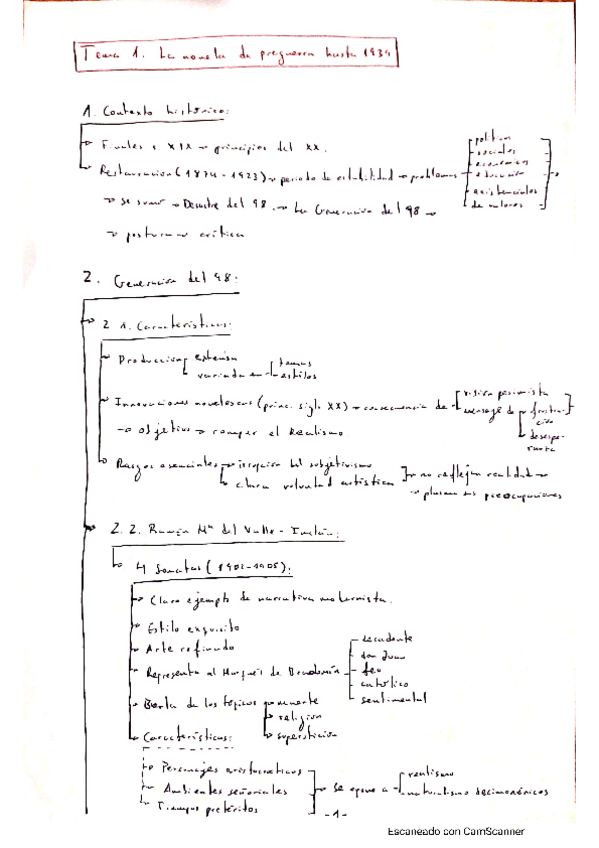 Tema 1. La novela de preguerra hasta 1939
1. Contexto histórico:
Finales s XIX → principios del XX.
Restauración (1874-1923) → periodo de estabilidad → problemas
políticos
sociales
económicos
educación
existenciales
de valores
→ se sumó → Desastre del 98. → La Generación del 98 →
→ postura crítica
2. Generación del 98:
2.1. Características:
Producción extensa
variada en
temas
estilos
Innovaciones novelescas (princ. siglo XX) → consecuencia de
visión pesimista
mensaje de
frustración
desesperanza
→ Objetivo → romper el Realismo
Rasgos esenciales → irrupción del subjetivismo
clara voluntad artística
→ no reflejan realidad →
→ plasman sus preocupaciones
2.2. Ramón Mª del Valle-Inclán:
4 Sonatas (1902-1905):
Claro ejemplo de narrativa modernista.
Estilo exquisito
Arte refinado
Representa al Marqués de Bradomín
decadente
don Juan
feo
católico
sentimental
Burla de los tópicos
muerte
religión
superstición
Características:
Personajes aristocráticos
Ambientes señoriales
Tiempos pretéritos
→ se opone a
realismo
naturalismo decimonónicos
-1-
Escaneado con CamScanner